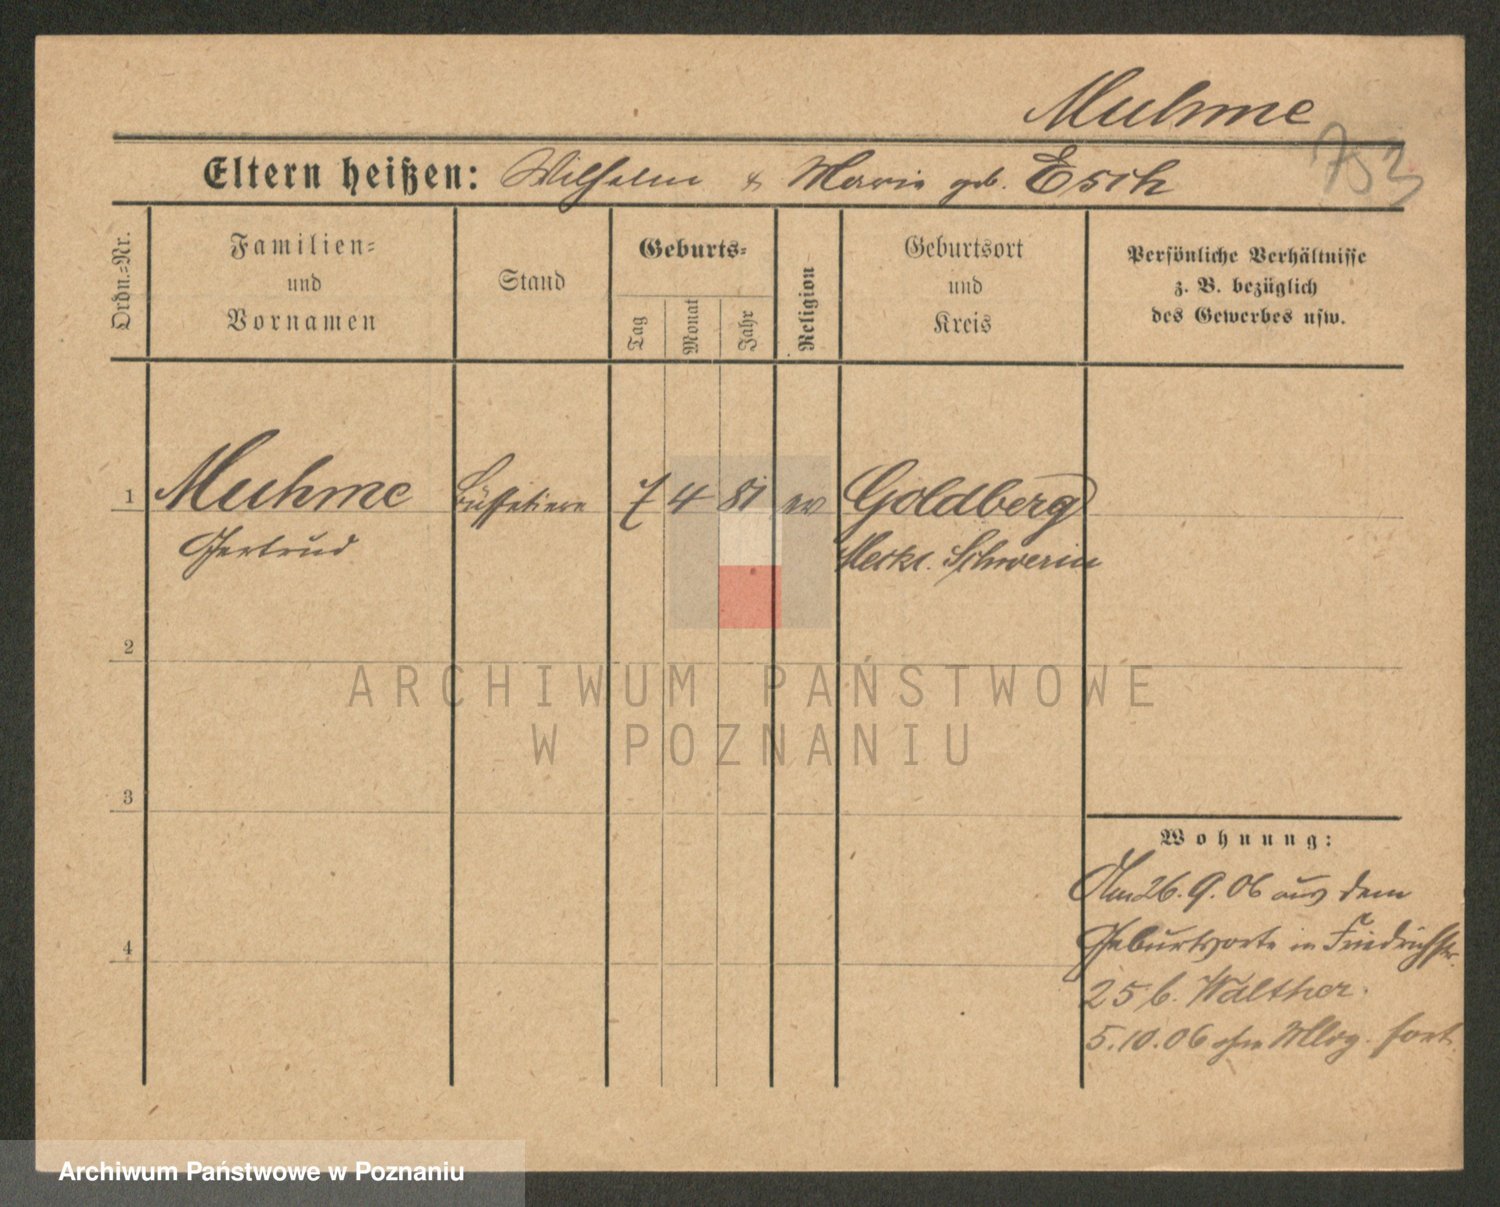 Muhme
753
Eltern heißen: Wilhelm & Marie geb. Esch
Ordn.-Nr.
Familien-
und
Vornamen
Stand
Geburts-
Tag
Monat
Jahr
Religion
Geburtsort
und
Kreis
Persönliche Verhältnisse
z. B. bezüglich
des Gewerbes usw.
1 Muhme Büffetiere 7 4 81 ev Goldberg
Gertrud Meckl. Schwerin
2
ARCHIWUM PAŃSTWOWE
W POZNANIU
3
Wohnung:
Am 26.9.06 aus dem
4
Geburtsorte in Friedrichstr.
25 b. Walther.
5.10.06 ohne Mldg. fort
Archiwum Państwowe w Poznaniu